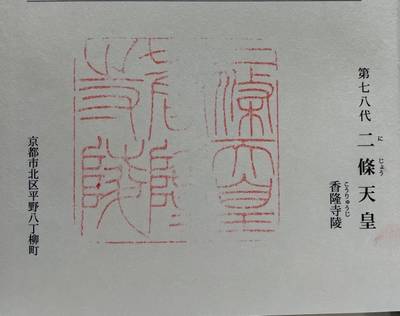 第七八代 二條天皇
に じょう
香隆寺陵
こうりゅうじ
二條天皇
香隆寺陵
京都市北区平野八丁柳町